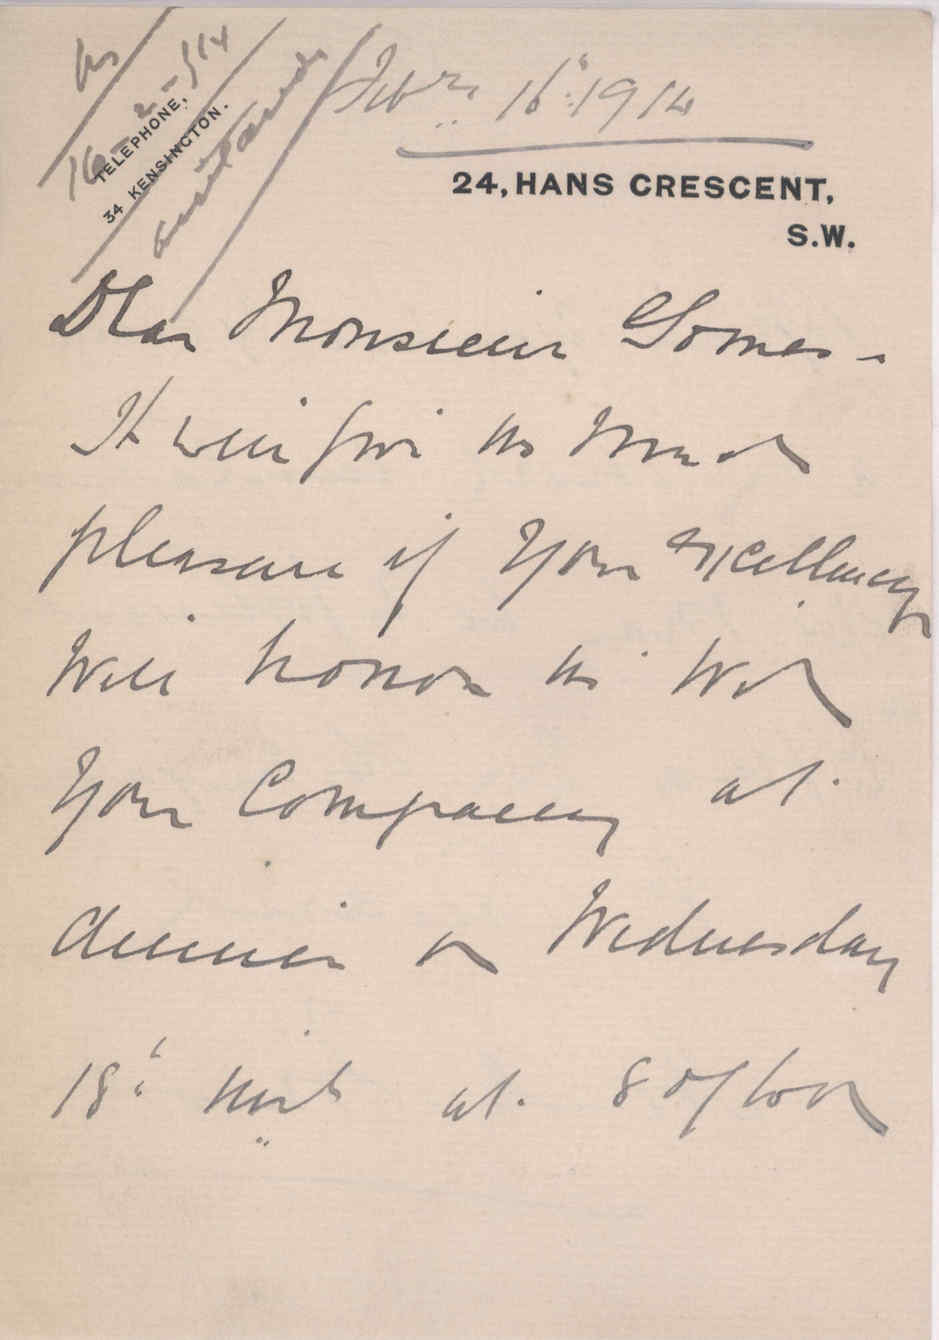 16-2-914
TELEPHONE,
34 KENSINGTON.
Febry 16th 1914
24, HANS CRESCENT,
S.W.
Dear Monsieur Gomes -
It will give us much
pleasure if Your Excellency
Will honor us With
Your Company at
dinner on Wednesday
18th inst at 8 o'clock